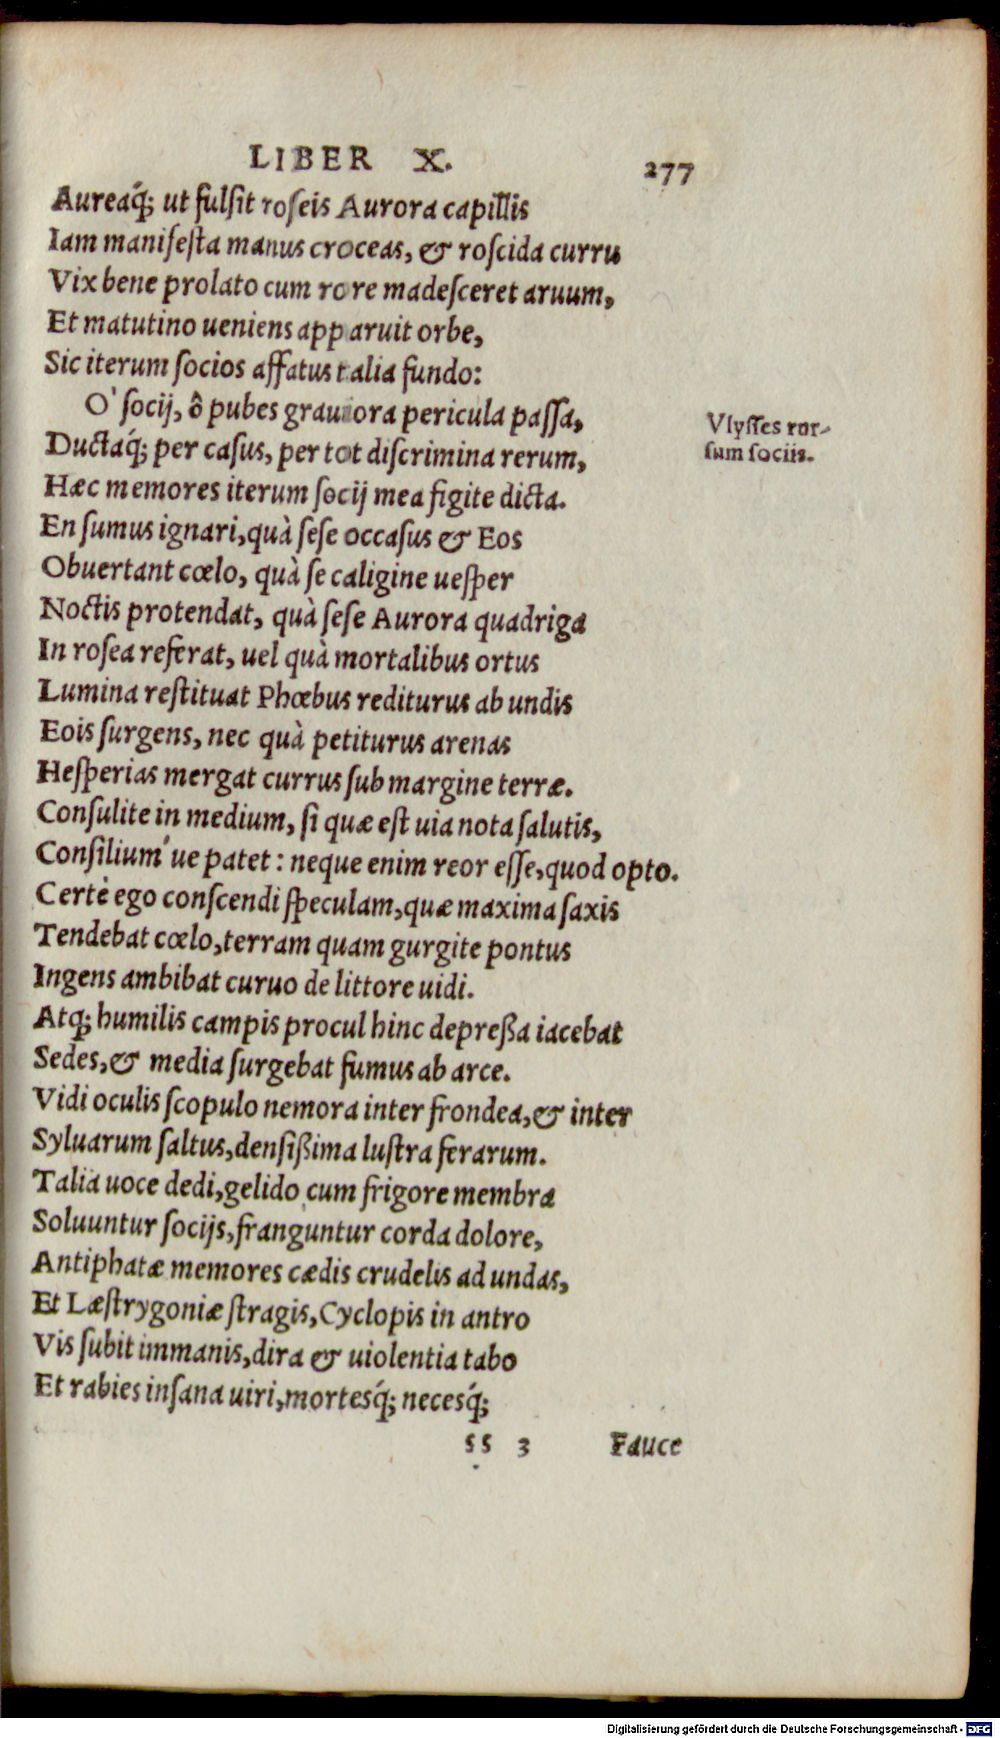 LIBER X. 277
Aureaq́; ut fulsit roseis Aurora capillis
Iam manifesta manus croceas, & roscida curru
Vix bene prolato cum rore madesceret aruum,
Et matutino ueniens apparuit orbe,
Sic iterum socios affatus talia fundo:
O' socij, ô pubes grauiora pericula passa,
Ductaq́; per casus, per tot discrimina rerum,
Hæc memores iterum socij mea figite dicta.
En sumus ignari, quà sese occasus & Eos
Obuertant cœlo, quà se caligine uesper
Noctis protendat, quà sese Aurora quadriga
In rosea referat, uel quà mortalibus ortus
Lumina restituat Phœbus rediturus ab undis
Eois surgens, nec quà petiturus arenas
Hesperias mergat currus sub margine terræ.
Consulite in medium, si quæ est uia nota salutis,
Consilium'ue patet: neque enim reor esse, quod opto.
Certè ego conscendi speculam, quæ maxima saxis
Tendebat cœlo, terram quam gurgite pontus
Ingens ambibat curuo de littore uidi.
Atq; humilis campis procul hinc depreßa iacebat
Sedes, & media surgebat fumus ab arce.
Vidi oculis scopulo nemora inter frondea, & inter
Syluarum saltus, densißima lustra ferarum.
Talia uoce dedi, gelido cum frigore membra
Soluuntur socijs, franguntur corda dolore,
Antiphatæ memores cædis crudelis ad undas,
Et Læstrygoniæ stragis, Cyclopis in antro
Vis subit immanis, dira & uiolentia tabo
Et rabies insana uiri, mortesq́; necesq́;
ss 3 Fauce
Vlysses rur-
sum sociis.
Digitalisierung gefördert durch die Deutsche Forschungsgemeinschaft - DFG